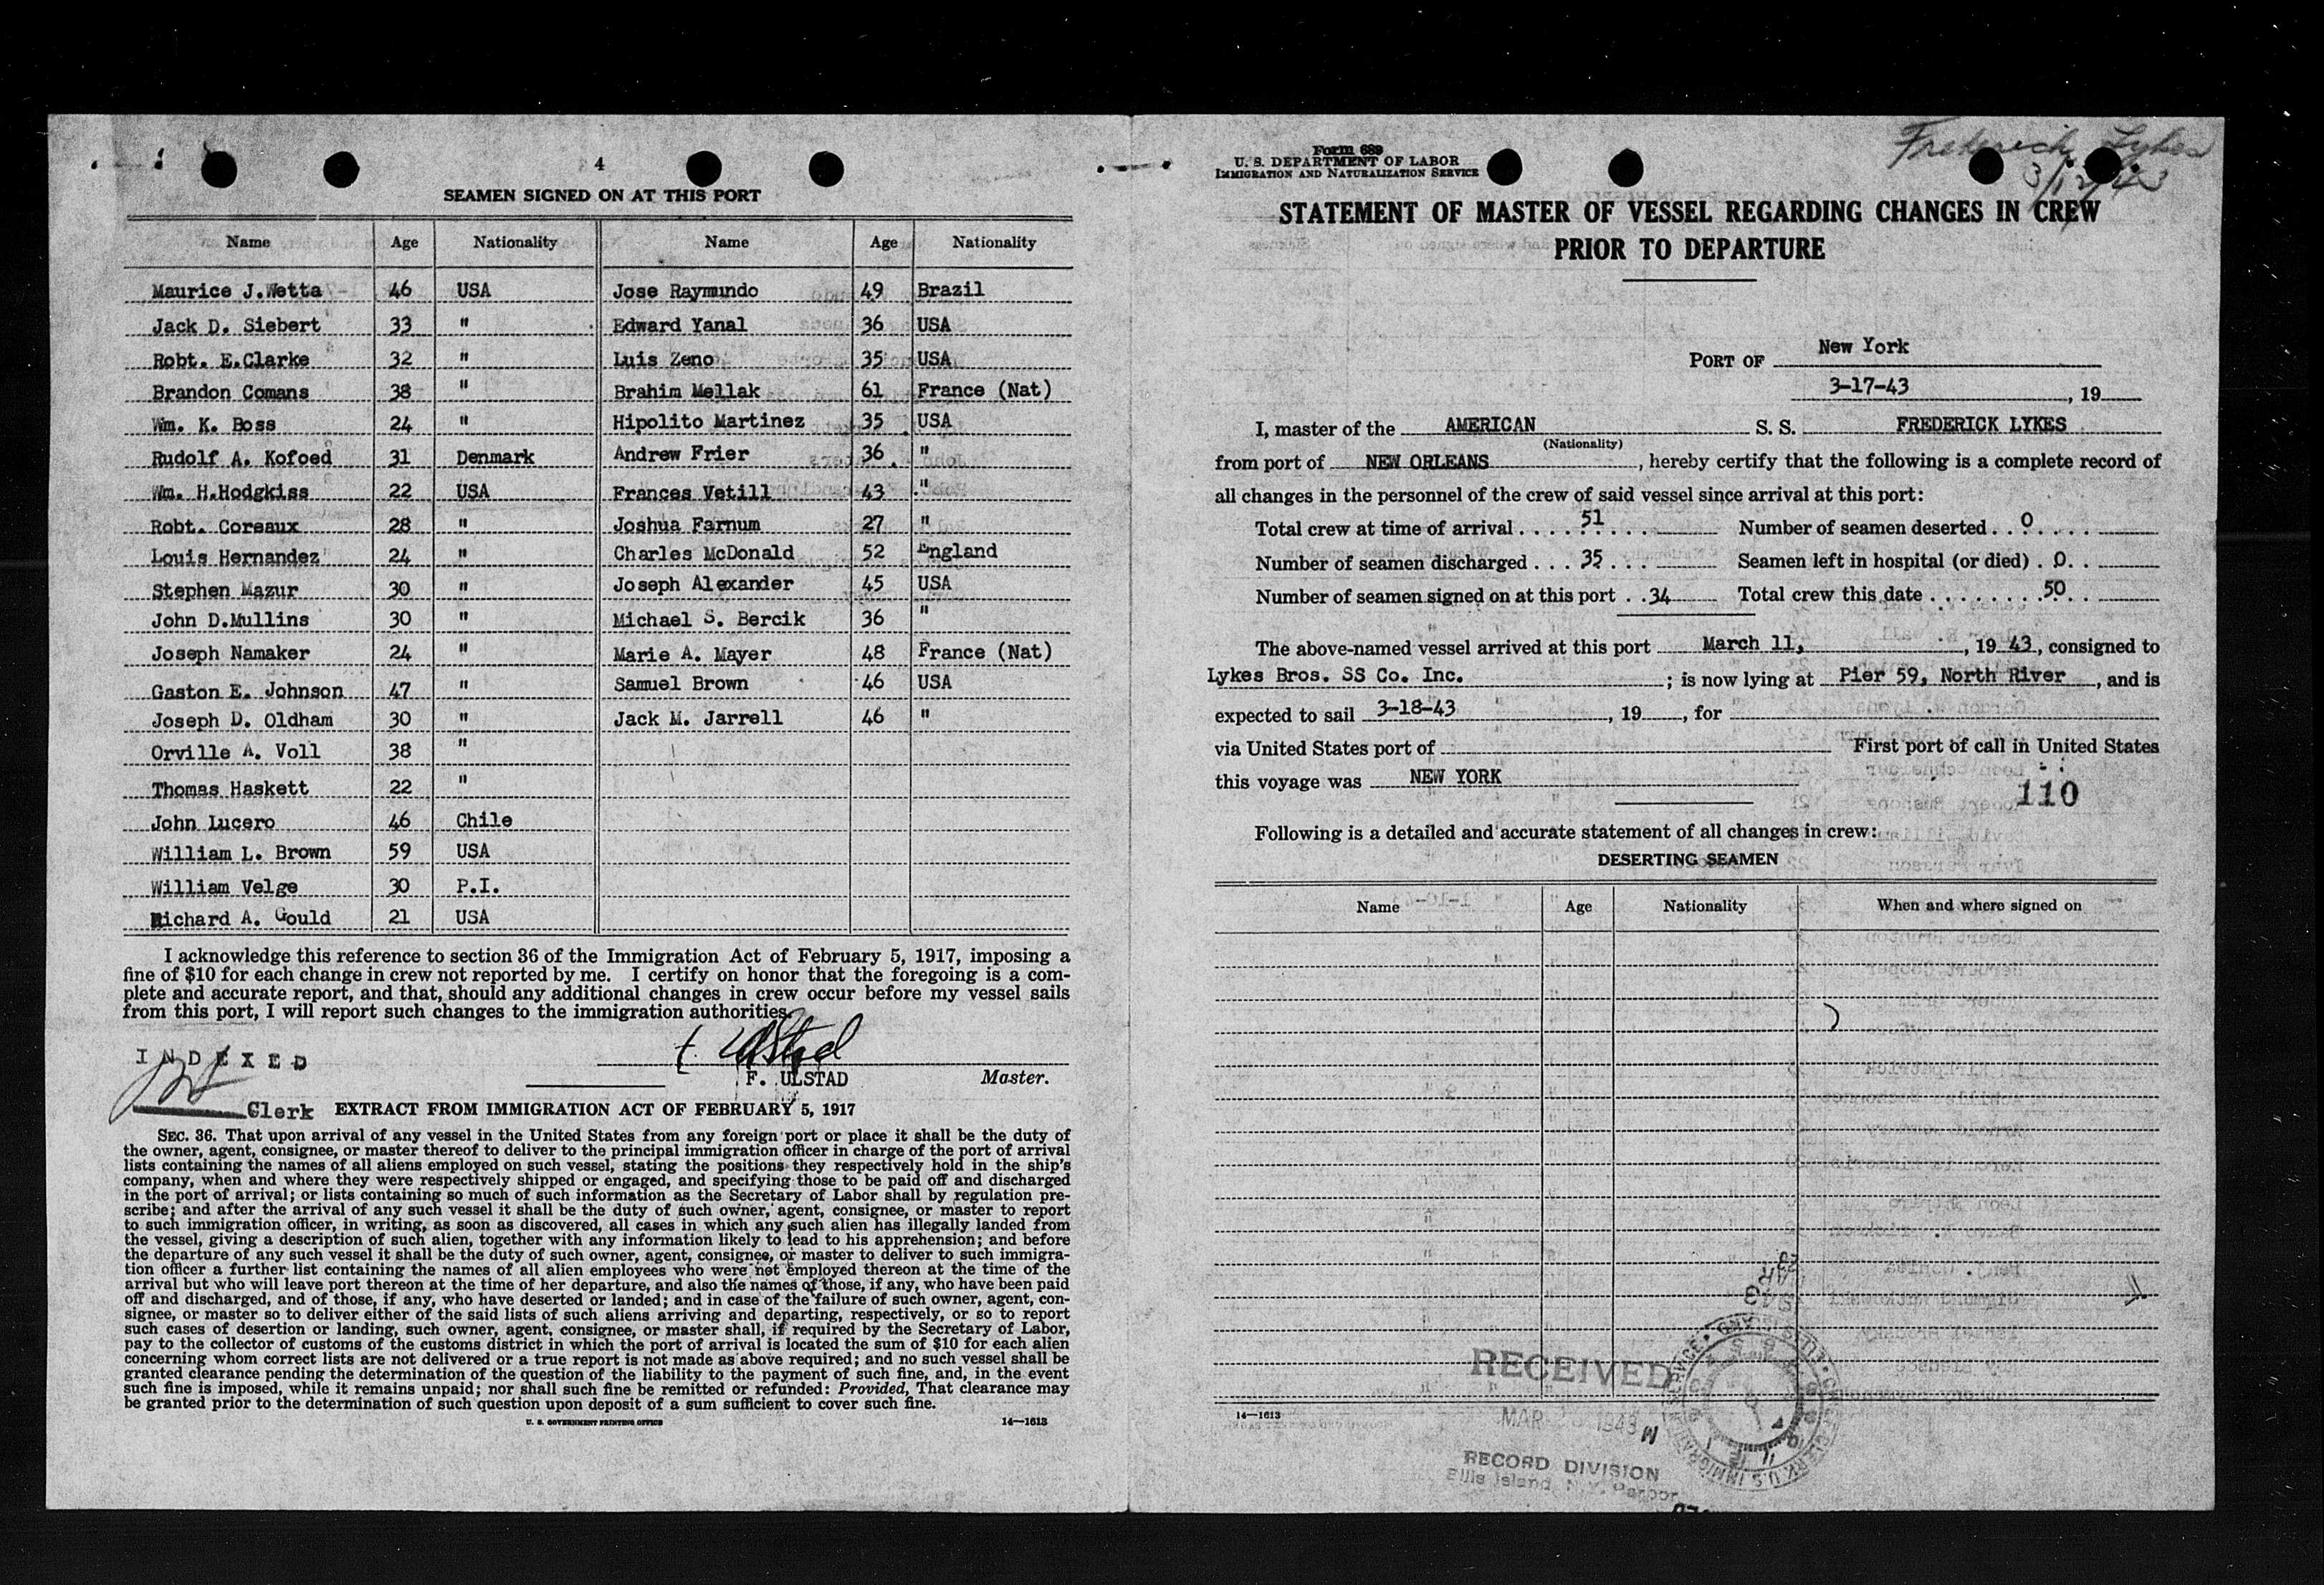 4
SEAMEN SIGNED ON AT THIS PORT
Name Age Nationality Name Age Nationality
Maurice J.Wetta 46 USA Jose Raymundo 49 Brazil
Jack D. Siebert 33 " Edward Yanal 36 USA
Robt. E.Clarke 32 " Luis Zeno 35 USA
Brandon Comans 38 " Brahim Mellak 61 France (Nat)
Wm. K. Boss 24 " Hipolito Martinez 35 USA
Rudolf A. Kofoed 31 Denmark Andrew Frier 36 "
Wm. H.Hodgkiss 22 USA Frances Vetill 43 "
Robt. Coreaux 28 " Joshua Farnum 27 "
Louis Hernandez 24 " Charles McDonald 52 England
Stephen Mazur 30 " Joseph Alexander 45 USA
John D.Mullins 30 " Michael S. Bercik 36 "
Joseph Namaker 24 " Marie A. Mayer 48 France (Nat)
Gaston E. Johnson 47 " Samuel Brown 46 USA
Joseph D. Oldham 30 " Jack M. Jarrell 46 "
Orville A. Voll 38 "
Thomas Haskett 22 "
John Lucero 46 Chile
William L. Brown 59 USA
William Velge 30 P.I.
Richard A. Gould 21 USA
I acknowledge this reference to section 36 of the Immigration Act of February 5, 1917, imposing a
fine of $10 for each change in crew not reported by me. I certify on honor that the foregoing is a com-
plete and accurate report, and that, should any additional changes in crew occur before my vessel sails
from this port, I will report such changes to the immigration authorities.
INDEXED
F. Ulstad
F. ULSTAD Master.
Clerk EXTRACT FROM IMMIGRATION ACT OF FEBRUARY 5, 1917
SEC. 36. That upon arrival of any vessel in the United States from any foreign port or place it shall be the duty of
the owner, agent, consignee, or master thereof to deliver to the principal immigration officer in charge of the port of arrival
lists containing the names of all aliens employed on such vessel, stating the positions they respectively hold in the ship's
company, when and where they were respectively shipped or engaged, and specifying those to be paid off and discharged
in the port of arrival; or lists containing so much of such information as the Secretary of Labor shall by regulation pre-
scribe; and after the arrival of any such vessel it shall be the duty of such owner, agent, consignee, or master to report
to such immigration officer, in writing, as soon as discovered, all cases in which any such alien has illegally landed from
the vessel, giving a description of such alien, together with any information likely to lead to his apprehension; and before
the departure of any such vessel it shall be the duty of such owner, agent, consignee, or master to deliver to such immigra-
tion officer a further list containing the names of all alien employees who were not employed thereon at the time of the
arrival but who will leave port thereon at the time of her departure, and also the names of those, if any, who have been paid
off and discharged, and of those, if any, who have deserted or landed; and in case of the failure of such owner, agent, con-
signee, or master so to deliver either of the said lists of such aliens arriving and departing, respectively, or so to report
such cases of desertion or landing, such owner, agent, consignee, or master shall, if required by the Secretary of Labor,
pay to the collector of customs of the customs district in which the port of arrival is located the sum of $10 for each alien
concerning whom correct lists are not delivered or a true report is not made as above required; and no such vessel shall be
granted clearance pending the determination of the question of the liability to the payment of such fine, and, in the event
such fine is imposed, while it remains unpaid; nor shall such fine be remitted or refunded: Provided, That clearance may
be granted prior to the determination of such question upon deposit of a sum sufficient to cover such fine.
U. S. GOVERNMENT PRINTING OFFICE 14—1613
Form 689
U. S. DEPARTMENT OF LABOR
IMMIGRATION AND NATURALIZATION SERVICE
Frederick Lykes
3/12/43
STATEMENT OF MASTER OF VESSEL REGARDING CHANGES IN CREW
PRIOR TO DEPARTURE
PORT OF New York
3-17-43, 19
I, master of the AMERICAN S. S. FREDERICK LYKES
(Nationality)
from port of NEW ORLEANS, hereby certify that the following is a complete record of
all changes in the personnel of the crew of said vessel since arrival at this port:
Total crew at time of arrival . . . . 51 . . . . Number of seamen deserted . . 0 . . . .
Number of seamen discharged . . . 35 . . . Seamen left in hospital (or died) . 0 . .
Number of seamen signed on at this port . . 34 Total crew this date . . . . . . . . 50 . .
The above-named vessel arrived at this port March 11, , 19 43, consigned to
Lykes Bros. SS Co. Inc. ; is now lying at Pier 59, North River, and is
expected to sail 3-18-43, 19, for
via United States port of First port of call in United States
this voyage was NEW YORK
110
Following is a detailed and accurate statement of all changes in crew:
DESERTING SEAMEN
Name Age Nationality When and where signed on
RECEIVED
14—1613
MAR 1943
RECORD DIVISION
Ellis Island, N.Y. Harbor